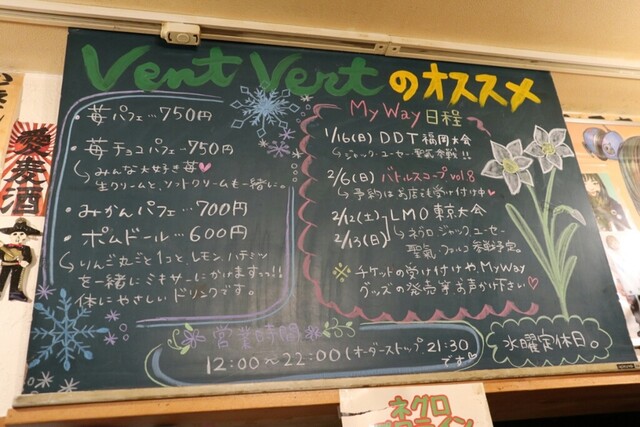 Vent Vertのオススメ
・苺パフェ…750円
・苺チョコパフェ…750円
↳みんな大好き苺♥
生クリームと、ソフトクリームも一緒に。
・みかんパフェ…700円
・ポムドール…600円
↳りんご丸ごと1つと、レモン ハチミツ
を一緒にミキサーにかけますっっ!!
体にやさしいドリンクです。
My Way 日程
1/16(日) DDT福岡大会
↳ジャック・ユーセー聖氣参戦!!
2/6(日) バトルスコープvol.8
↳予約はお店でも受け付け中♥
2/12(土)
2/13(日)
LMO東京大会
↳ネグロ ジャック ユーセー
聖氣 参戦予定。
※チケットの受け付けや、MyWay
グッズの発売事お声かけ下さい♡
営業時間
12:00〜22:00(オーダーストップ 21:30
です♥
水曜定休日。
蕎麦酒
ネグロ